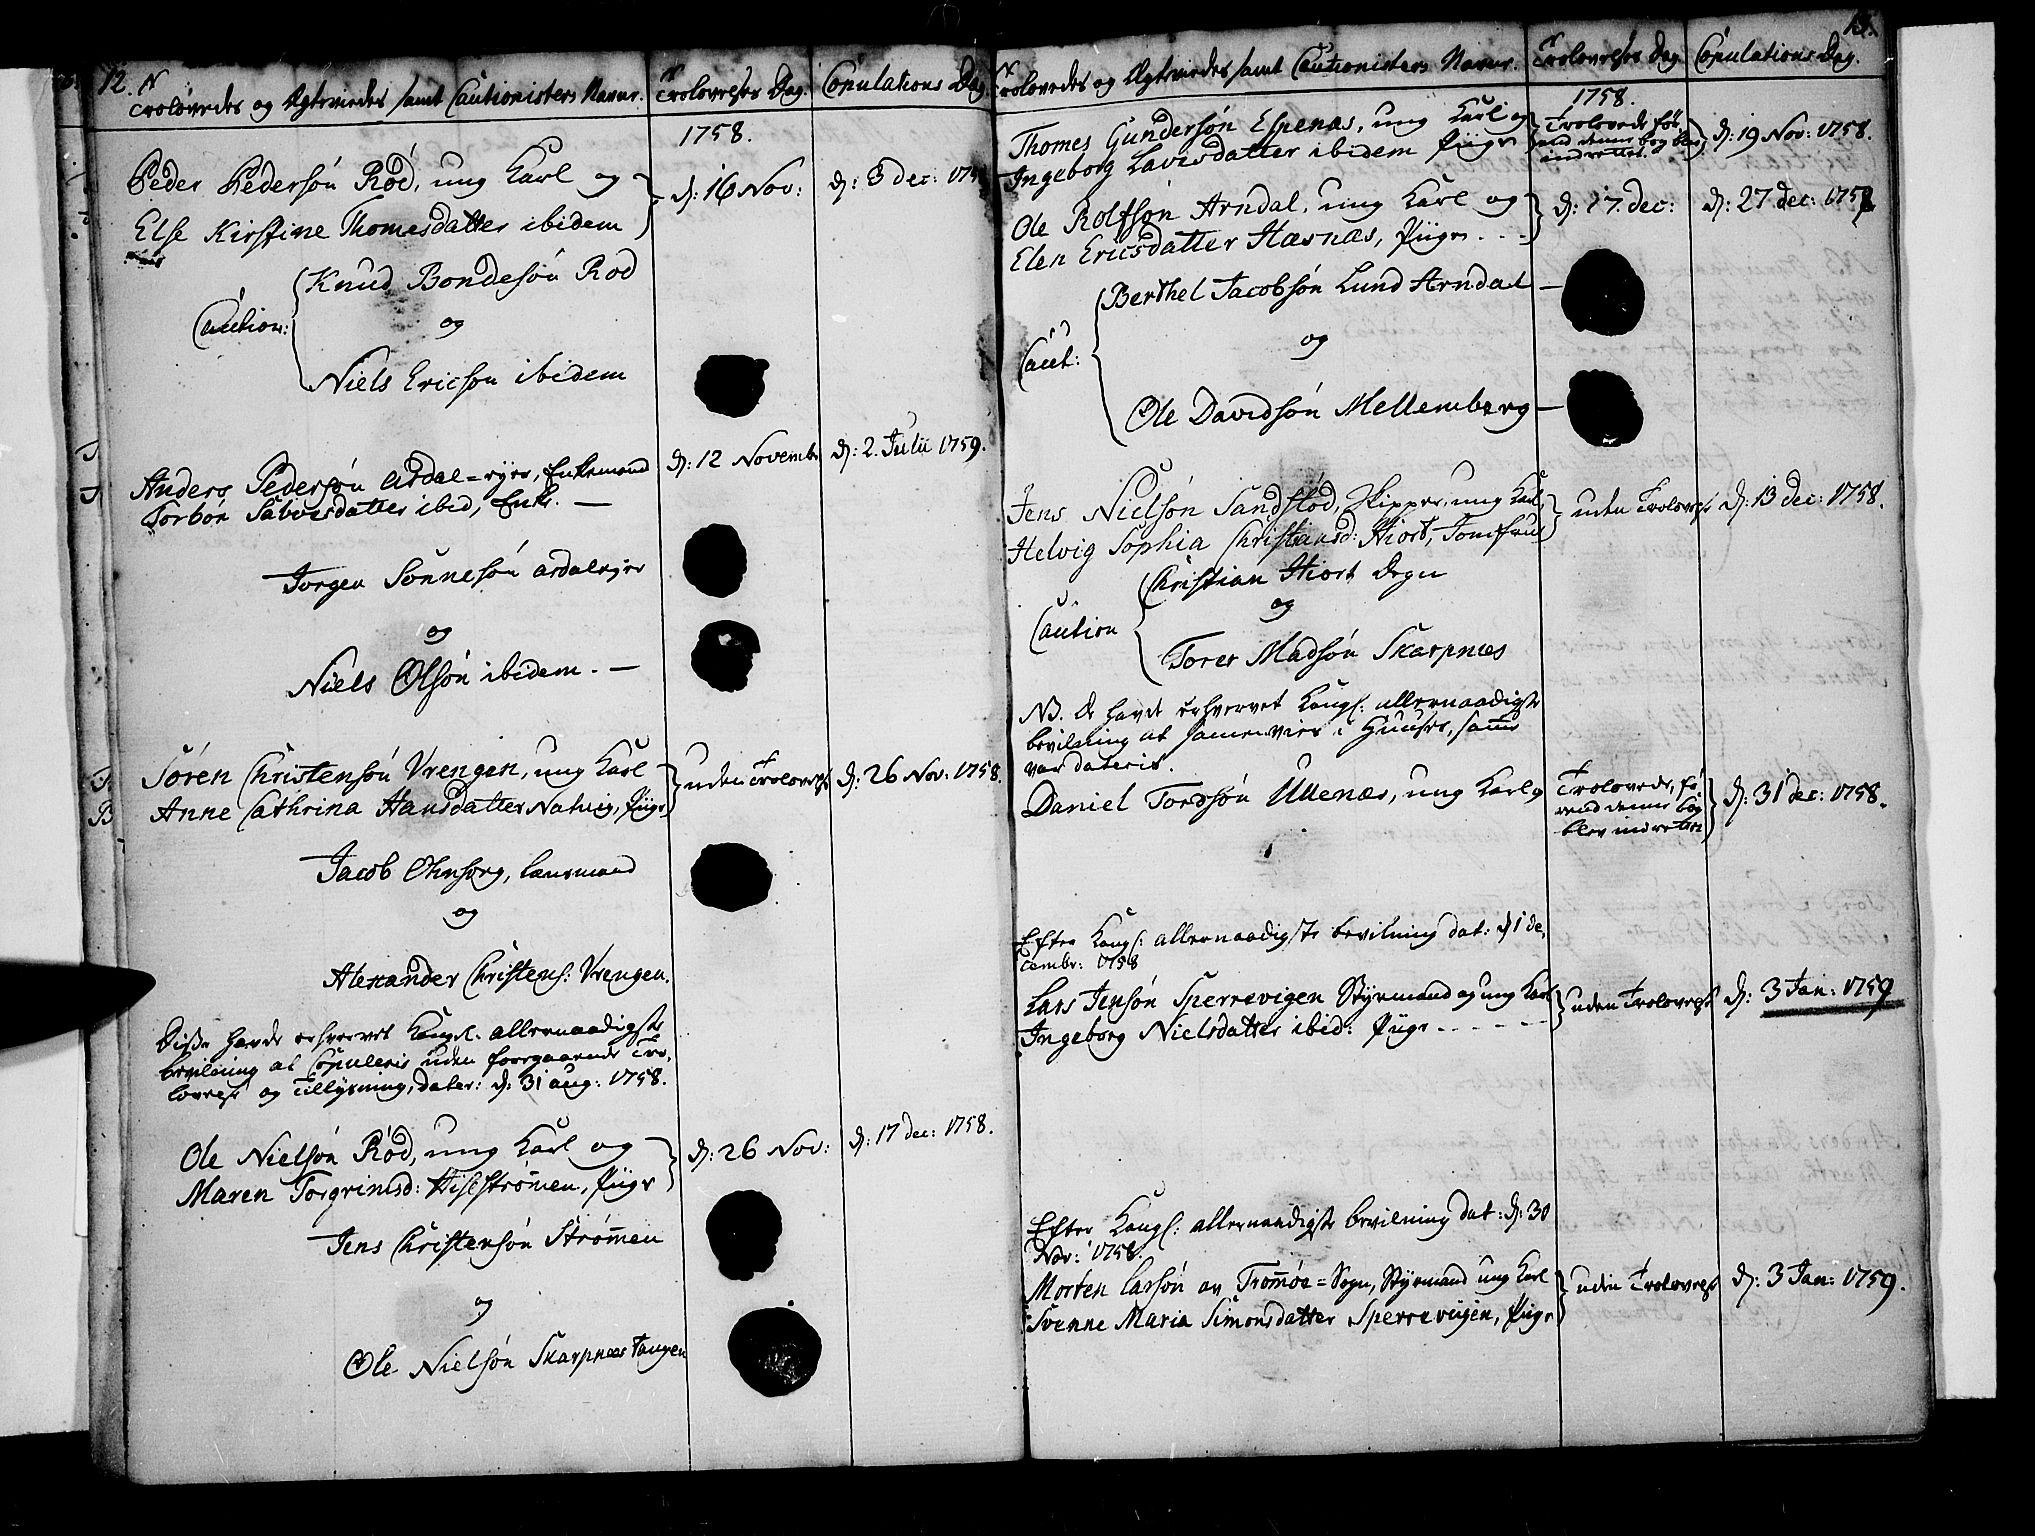 12.
Trolovedes og Ægteviedes samt Cautionisters Navne.
Trolovelses Dag.
Copulations Dag
1758.
Peder Pedersön Röd, ung Karl og
Else Kirstine Thomesdatter ibidem
d: 16 Nov:
d: 3 dec: 175
Caution:
Knud Bondesön Rod
og
Niels Ericson ibidem
Anders Pedersön Ardal=øjer, Enkemand
Torbor Salvesdatter ibid, Enke. —
d: 12 Novemb:
d: 2. Julii 1759.
Jorgen Sönnesön ardaløjer
og
Niels Olsön ibidem. —
Sören Christensön Vrengen, ung Karl
Anne Cathrina Hansdatter Natvig, Piige
uden Trolovelse
d: 26 Nov: 1758.
Jacob Ohnsorg, lænsmand
og
Alexander Christens: Vrengen.
Disse havde erhvervet Kongl. allernaadigste
bevilning at Copuleris uden foregaaende Tro-
lovelse og Tillysning, dater: d: 31 aug: 1758.
Ole Nielsön Röd, ung Karl og
Maren Torgrimsd: Hisestrømen, Piige
d: 26 Nov:
d: 17 dec: 1758.
Jens Christensön Strømen
og
Ole Nielsön Skarpnæs tangen
13.
Trolovedes og Ægteviedes samt Cautionisters Navne.
Trolovelses Dag
Copulations Dag.
1758.
Thomes Gundersön Espenæs, ung Karl og
Ingeborg Lavesdatter ibidem Piige
Trolovede för
end denne bog blev
indrettet.
d: 19 Nov: 1758.
Ole Rolfsön Arndal, ung Karl og
Elen Ericsdatter Hasnæs, Piige. - -
d: 17. dec:
d: 27 dec: 1758
Caut:
Berthel Jacobsön Lund Arndal —
og
Ole Davidsön Mellemberg —
Jens Nielsön Sandstöd, Skipper, ung Karl,
Helvig Sophia Christiansd: Hiort, Jomfrue
uden Trolovelse
d: 13 dec: 1758.
Caution
Christian Hiort degn
og
Tores Madsön Skarpnæs
NB. de havde erhvervet Kongl: allernaadigste
bevilning at samenvies i Huuset, samme
var dateris.
Daniel Tordsön Ullenæs, ung Karl og
Trolovede, fö-
rend denne bog
blev indrettet
d: 31 dec: 1758.
Efter Kongl: allernaadigste bevilning dat: d 1 de,
cembr: 1758
Lars Jensön Sperrevigen Styrmand og ung Karl
Ingeborg Nielsdatter ibid: Piige - - - - -
uden Trolovelse
d: 3 Jan: 1759
Efter Kongl: allernaadigste bevilning dat: d: 30
Nov: 1758.
Morten Larsön av Tromöe=Sogn, Styrmand ung Karl
Svenne Maria Simonsdatter Sperrevigen, Piige
uden Trolovelse
d: 3 Jan: 1759.